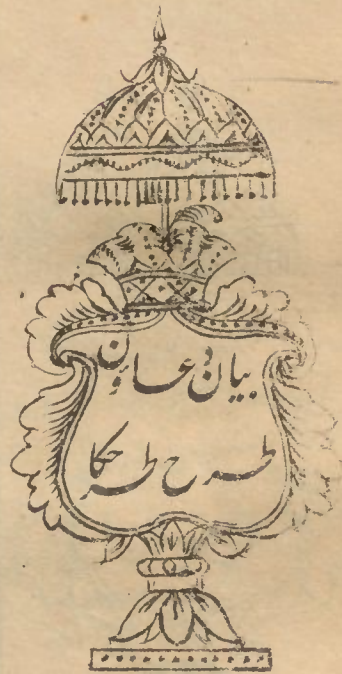 بیان دعاؤن
طرح طرحکا